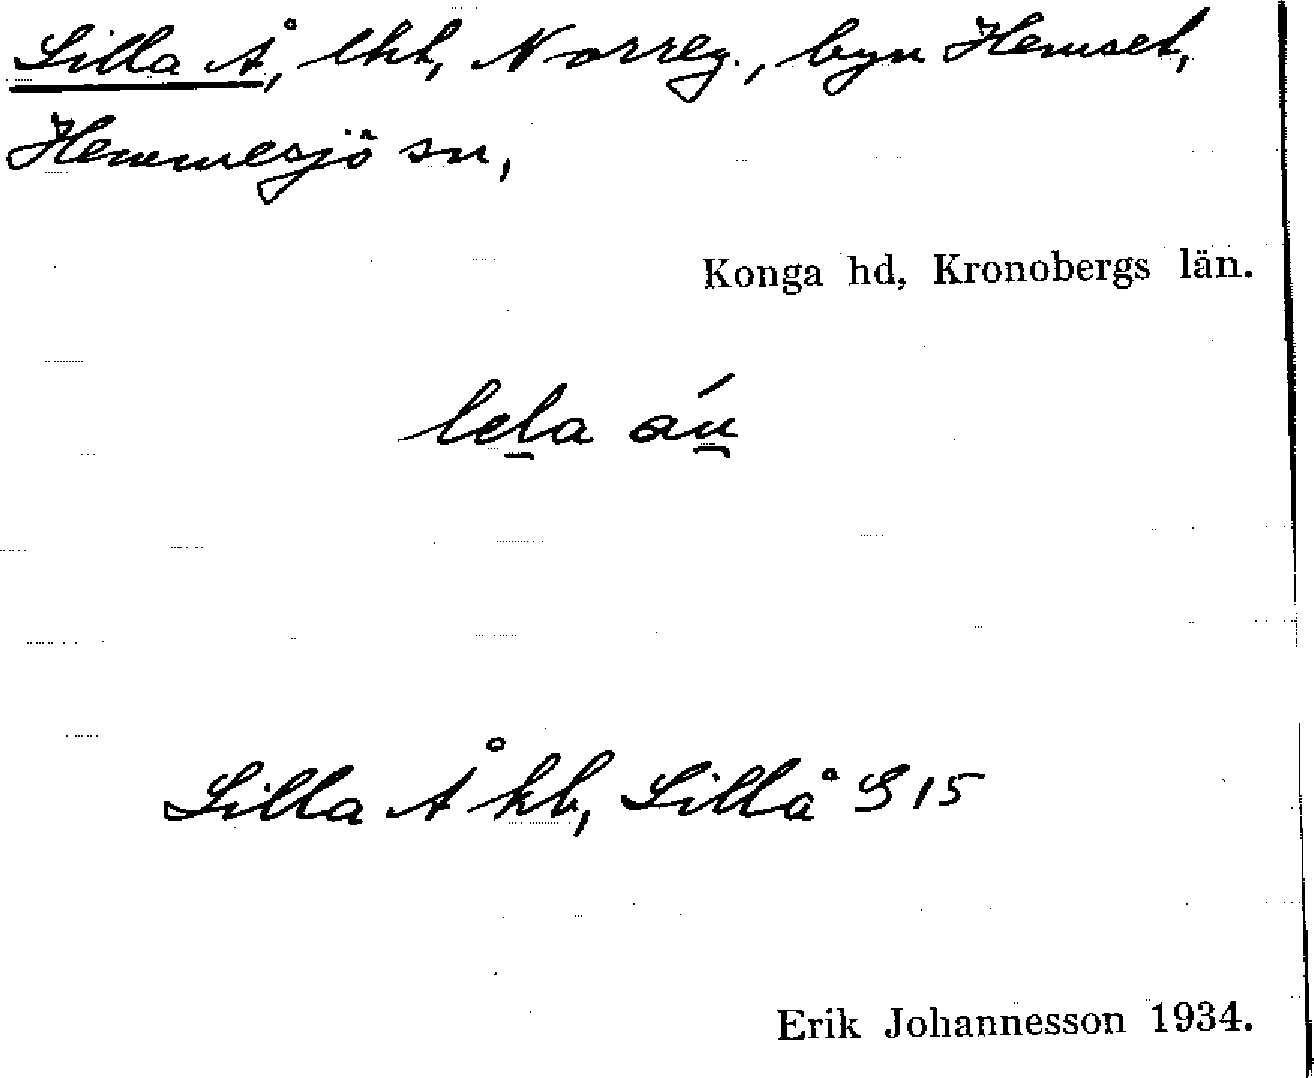 Lilla Å, lht, Norreg., byn Hemset,
Hemmesjö sn,
Konga hd, Kronobergs län.
lela án
Lilla Å kb, Lillå S 15
Erik Johannesson 1934.